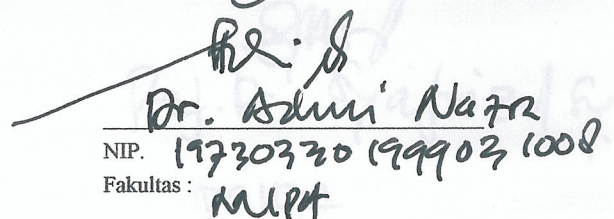 Dr. Admi Nazra
NIP. 19730330 199903 1008
Fakultas : MIPA